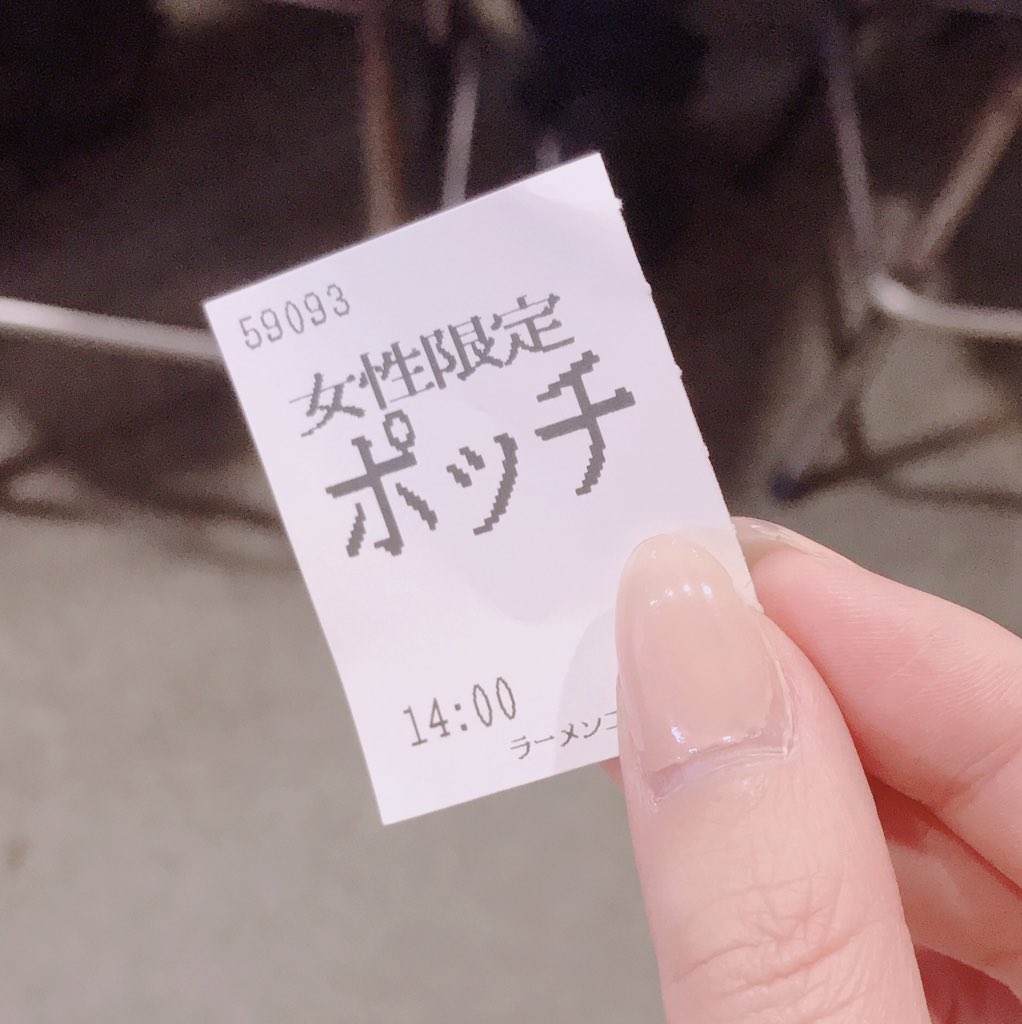 59093
女性限定
ポッチ
14:00
ラーメン